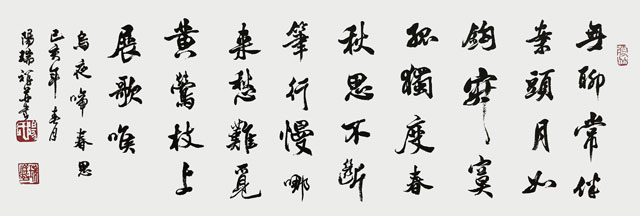 無聊常伴
案頭月如
鉤寂寞
孤獨度春
秋思不斷
筆行慢哪
来愁難覓
黄鶯枝上
展歌喉
烏夜啼 春思
己亥年 春月